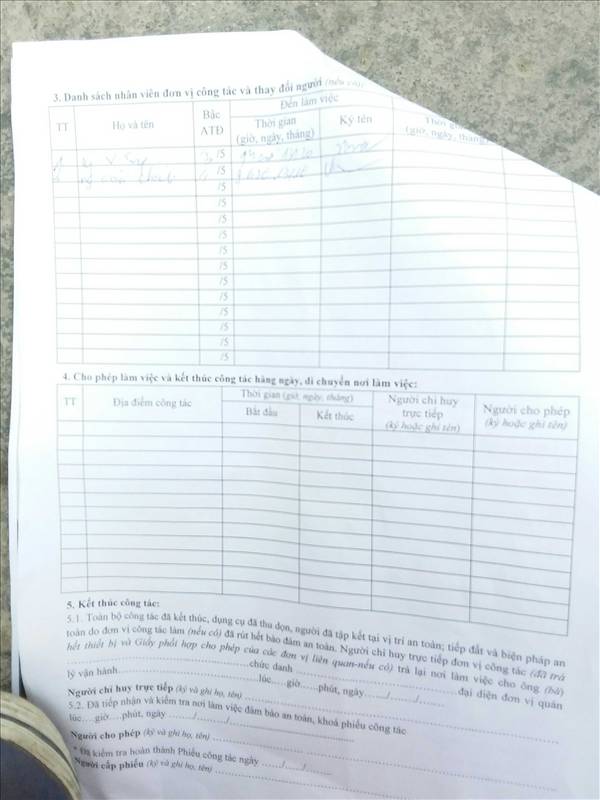 3. Danh sách nhân viên đơn vị công tác và thay đổi người (nếu có):
TT Họ và tên Bậc ATĐ Đến làm việc
Thời gian (giờ, ngày, tháng) Ký tên Thời (giờ, ngày, tháng)
1 /5
/5
/5
/5
/5
/5
/5
/5
/5
/5
/5
/5
/5
/5
4. Cho phép làm việc và kết thúc công tác hàng ngày, di chuyển nơi làm việc:
TT Địa điểm công tác Thời gian (giờ, ngày, tháng) Người chỉ huy trực tiếp (ký hoặc ghi tên) Người cho phép (ký hoặc ghi tên)
Bắt đầu Kết thúc
5. Kết thúc công tác:
5.1. Toàn bộ công tác đã kết thúc, dụng cụ đã thu dọn, người đã tập kết tại vị trí an toàn; tiếp đất và biện pháp an
toàn do đơn vị công tác làm (nếu có) đã rút hết bảo đảm an toàn. Người chỉ huy trực tiếp đơn vị công tác (đã trả
hết thiết bị và Giấy phối hợp cho phép của các đơn vị liên quan-nếu có) trả lại nơi làm việc cho ông (bà)
chức danh đại diện đơn vị quản
lý vận hành lúc giờ phút, ngày / /
Người chỉ huy trực tiếp (ký và ghi họ, tên)
5.2. Đã tiếp nhận và kiểm tra nơi làm việc đảm bảo an toàn, khoá phiếu công tác
lúc giờ phút, ngày / /
Người cho phép (ký và ghi họ, tên)
* Đã kiểm tra hoàn thành Phiếu công tác ngày / /
Người cấp phiếu (ký và ghi họ, tên)